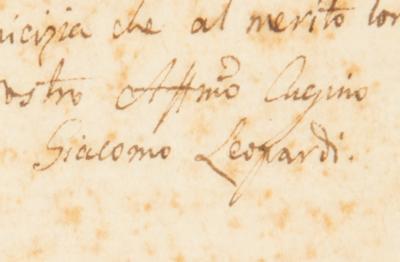 micizia che al merito lor
ostro Affmo Cugino
Giacomo Leopardi.